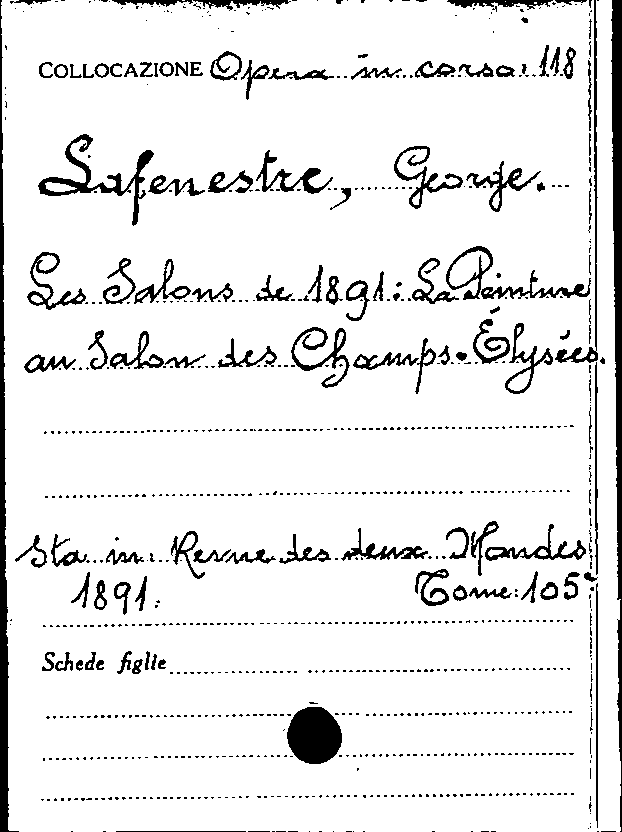 COLLOCAZIONE Opera in corso: 118
Lafenestre, George.
Les Salons de 1891: La Peinture
au Salon des Champs-Élysées.
Sta in: Revue des deux Mondes
1891. Tome: 105°
Schede figlie